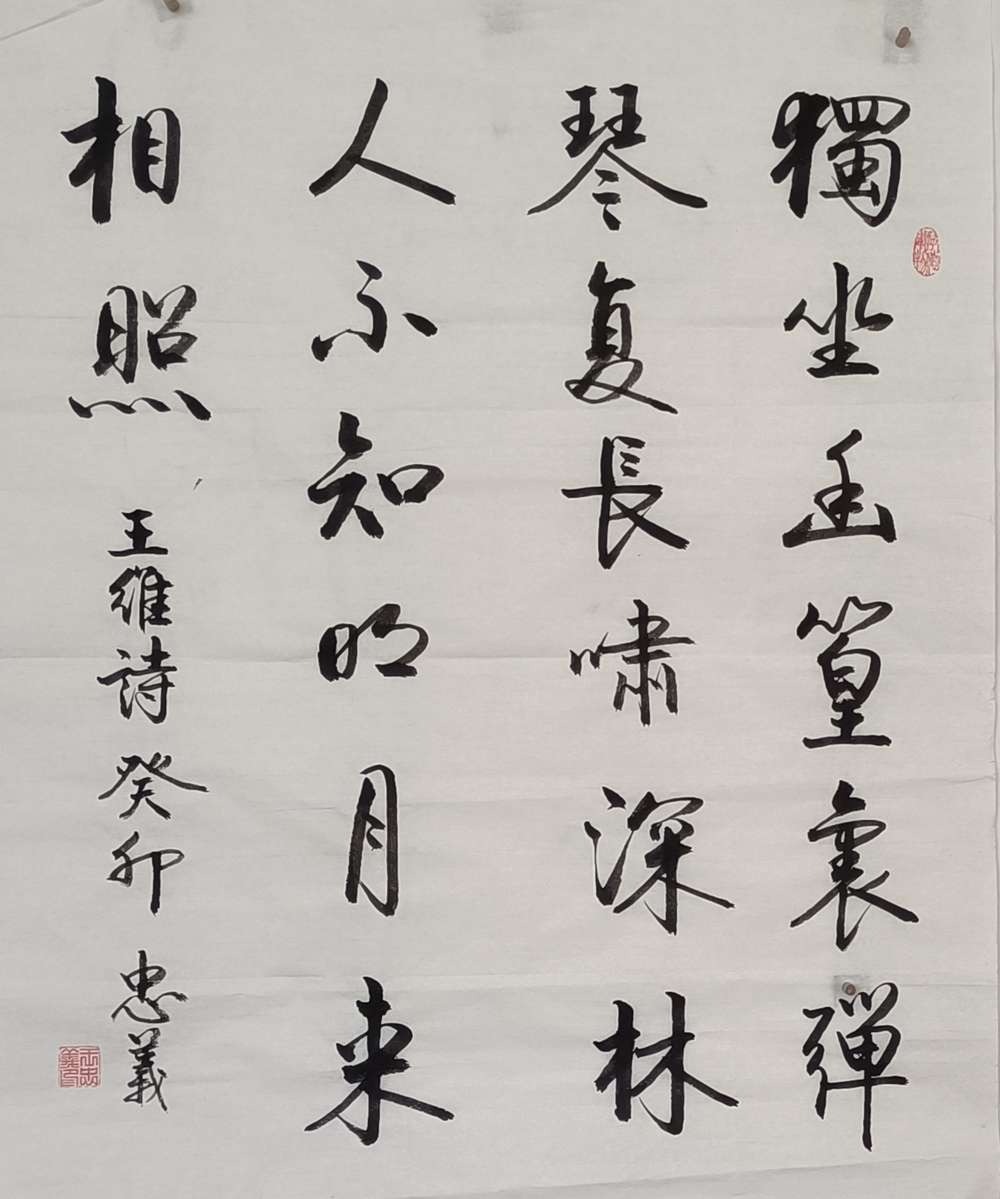 獨坐幽篁裏彈
琴复長嘯深林
人不知明月来
相照
王維詩癸卯忠義